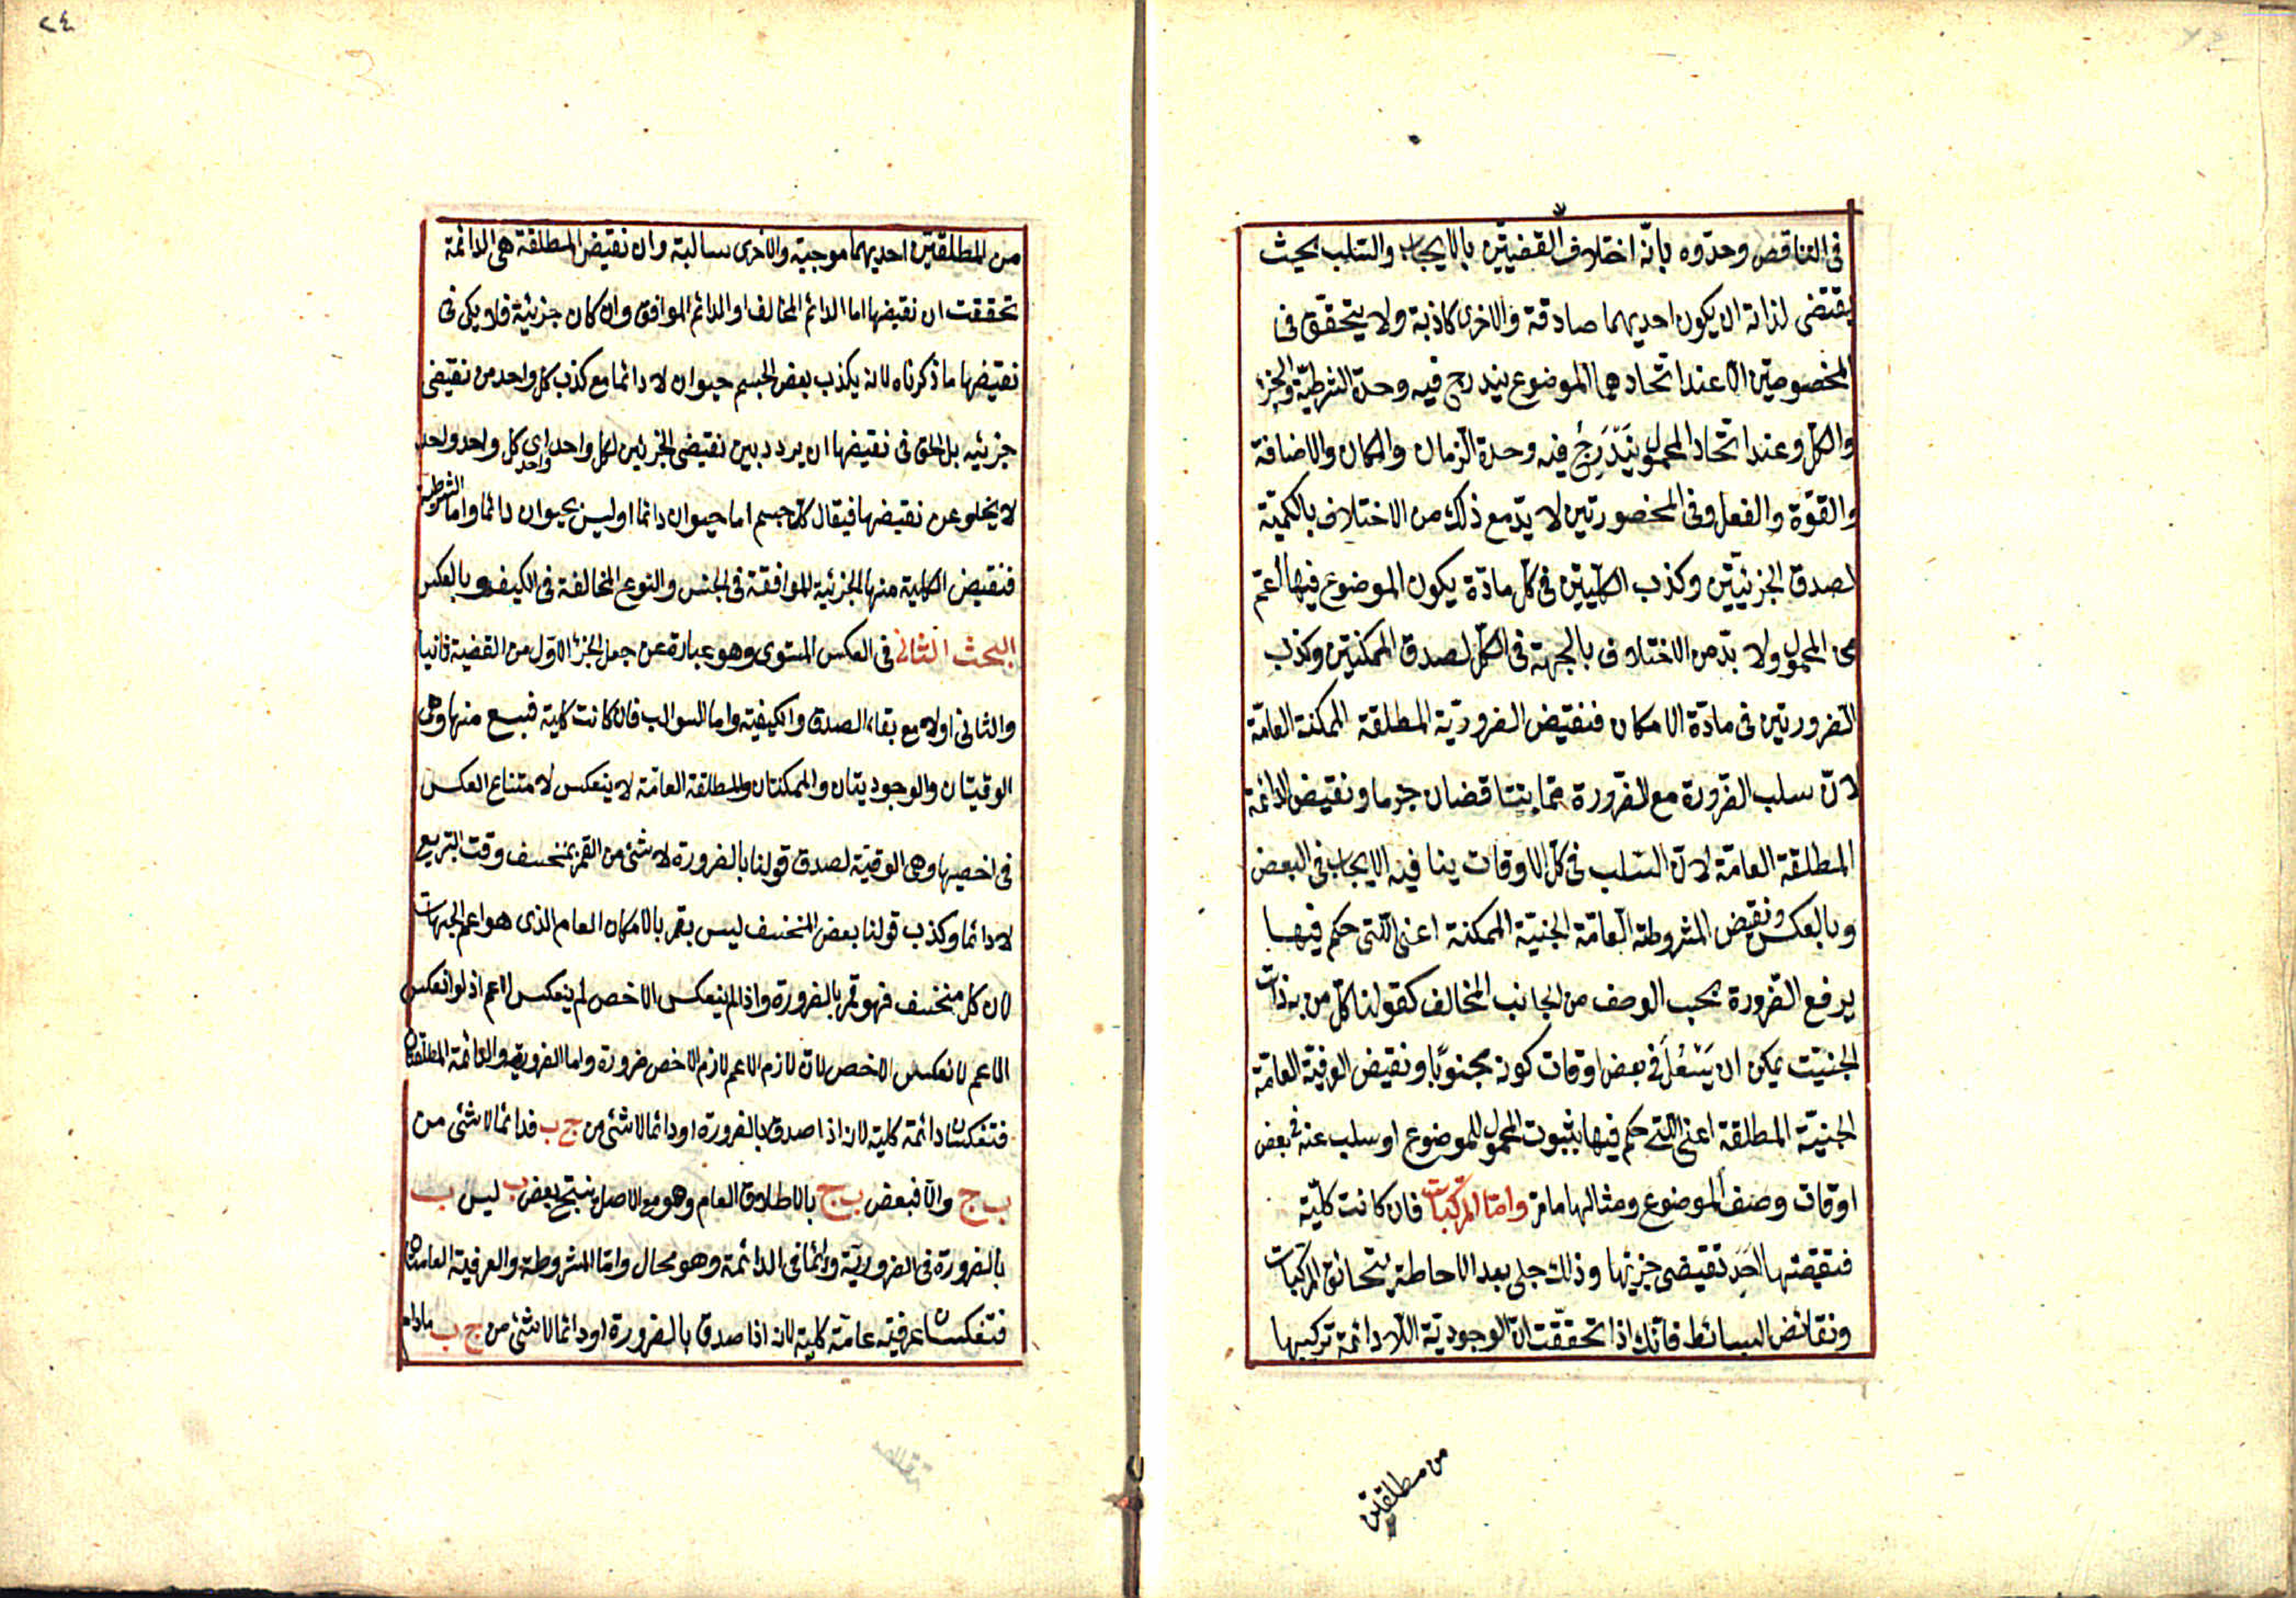 فى التناقض وحدّوه بانّه اختلاف القضيتين بالايجاب والسّلب بحيث
يقتضى لذاته ان يكون احديهما صادقة والاخرى كاذبة ولا يتحقّق فى
المخصوصتين الّا عند اتحادهما الموضوع يندرج فيه وحدة الشرطيّة والجزء
والكل وعند اتحاد المحمول يَنْدَرِجُ فيه وحدة الزمان والمكان والاضافة
والقوّة والفعل وفى المحصورتين لا بدّ مع ذلك من الاختلاف بالكميّة
لصدق الجزئيتين وكذب الكليّتين فى كلّ مادّة يكون الموضوع فيها اعمّ
من المحمول ولا بدّ من الاختلاف بالجهة فى الكلّ لصدق الممكنتين وكذب
الضروريتين فى مادّة الامكان فنقيض الضروريّة المطلقة الممكنة العامّة
لانّ سلب الضرورة مع الضرورة ممّا يتناقضان جزما ونقيض الدائمة
المطلقة العامّة لانّ السّلب فى كلّ الاوقات ينافيه الايجاب فى البعض
وبالعكس ونقيض المشروطة العامّة الحينيّة الممكنة اعنى الّتى حكم فيها
يرفع الضرورة بحسب الوصف من الجانب المخالف كقولنا كلّ من به ذات
الجنبت يمكن ان يَسْعُلَ فى بعض اوقات كونه مجنوبًا ونقيض العرفيّة العامّة
الحينيّة المطلقة اعنى الّتى حكم فيها بثبوت المحمول للموضوع او سلب عنه فى بعض
اوقات وصف الموضوع ومثالها ما مرّ وامّا المركّبات فان كانت كليّة
فنقيضها احَد نقيضى جزئيها وذلك جلى بعد الاحاطة بحقائق المركّبات
ونقائض البسائط فانّك اذا تحقّقت انّ الوجوديّة اللّادائمة تركيبها
من مطلقتين
٢٤
من المطلقتين احديهما موجبة والاخرى سالبة وان نقيض المطلقة هى الدائمة
تحققت ان نقيضها اما الدائم المخالف او الدائم الموافق وان كان جزئية فلا يكفى فى
نقيضها ما ذكرناه لانه يكذب بعض الجسم حيوان لا دائما مع كذب كل واحد من نقيضى
جزئيه بل الحق فى نقيضها ان يردد بين نقيضى الجزئين لكل واحد واحد اى كل واحد واحد
لا يخلو عن نقيضها فيقال كل جسم اما حيوان دائما او ليس بحيوان دائما واما الشرطية
فنقيض الكلية منها الجزئية الموافقة فى الجنس والنوع المخالفة فى الكيف وبالعكس
البحث الثانى فى العكس المستوى وهو عبارة عن جعل الجزء الاول من القضية ثانيا
والثانى اولا مع بقاء الصدق والكيفيته واما السوالب فان كانت كلية فسبع منها وهى
الوقتيتان والوجوديتان والممكنتان والمطلقة العامّة لا ينعكس لامتناع العكس
فى اخصها وهى الوقتية لصدق قولنا بالضرورة لا شئ من القمر بمنخسف وقت التربيع
لا دائما وكذب قولنا بعض المنخسف ليس بقمر بالامكان العام الذى هو اعم الجهات
لان كل منخسف فهو قمر بالضرورة واذا لم ينعكس الاخص لم ينعكس الاعم اذ لو انعكس
الاعم لانعكس الاخص لان لازم الاعم لازم الاخص ضرورة واما الضرورية والدائمة المطلقتان
فتنعكسان دائمة كلية لانه اذا صدق بالضرورة او دائما لا شئ من ج ب فدائما لا شئ من
ب ج والّا فبعض ب ج بالاطلاق العام وهو مع الاصل ينتج بعض ب ليس ب
بالضرورة فى الضروريّة ودائما فى الدائمة وهو محال وامّا المشروطة والعرفية العامتان
فتنعكسان عرفية عامّة كلية لانه اذا صدق بالضرورة او دائما لا شئ من ج ب مادام